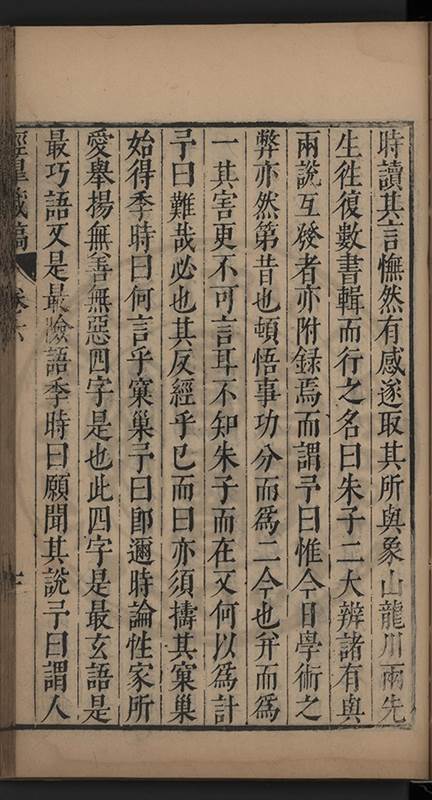 時讀其言憮然有感遂取其所與象山龍川兩先
生徃復數書輯而行之名曰朱子二大辨諸有與
兩說互發者亦附録焉而謂予曰惟今日學術之
弊亦然第昔也頓悟事功分而為二今也并而為
一其害更不可言耳不知朱子而在又何以為計
予曰難哉必也其反經乎已而曰亦須擣其窠巢
始得季時曰何言乎窠巢予曰即邇時論性家所
愛舉揚無善無惡四字是也此四字是最玄語是
最巧語又是最險語季時曰願聞其說予曰謂人
涇皐藏稿 卷六